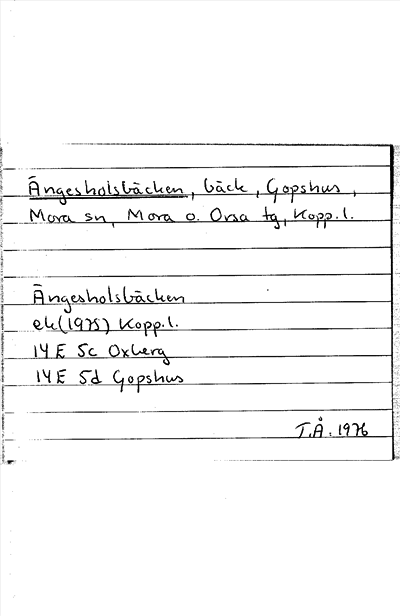 Ängesholsbäcken, bäck, Gopshus,
Mora sn, Mora o. Orsa tg, Kopp. l.
Ängesholsbäcken
ek(1975) Kopp. l.
14 E 5c Oxberg
14 E 5d Gopshus
T.Å. 1976